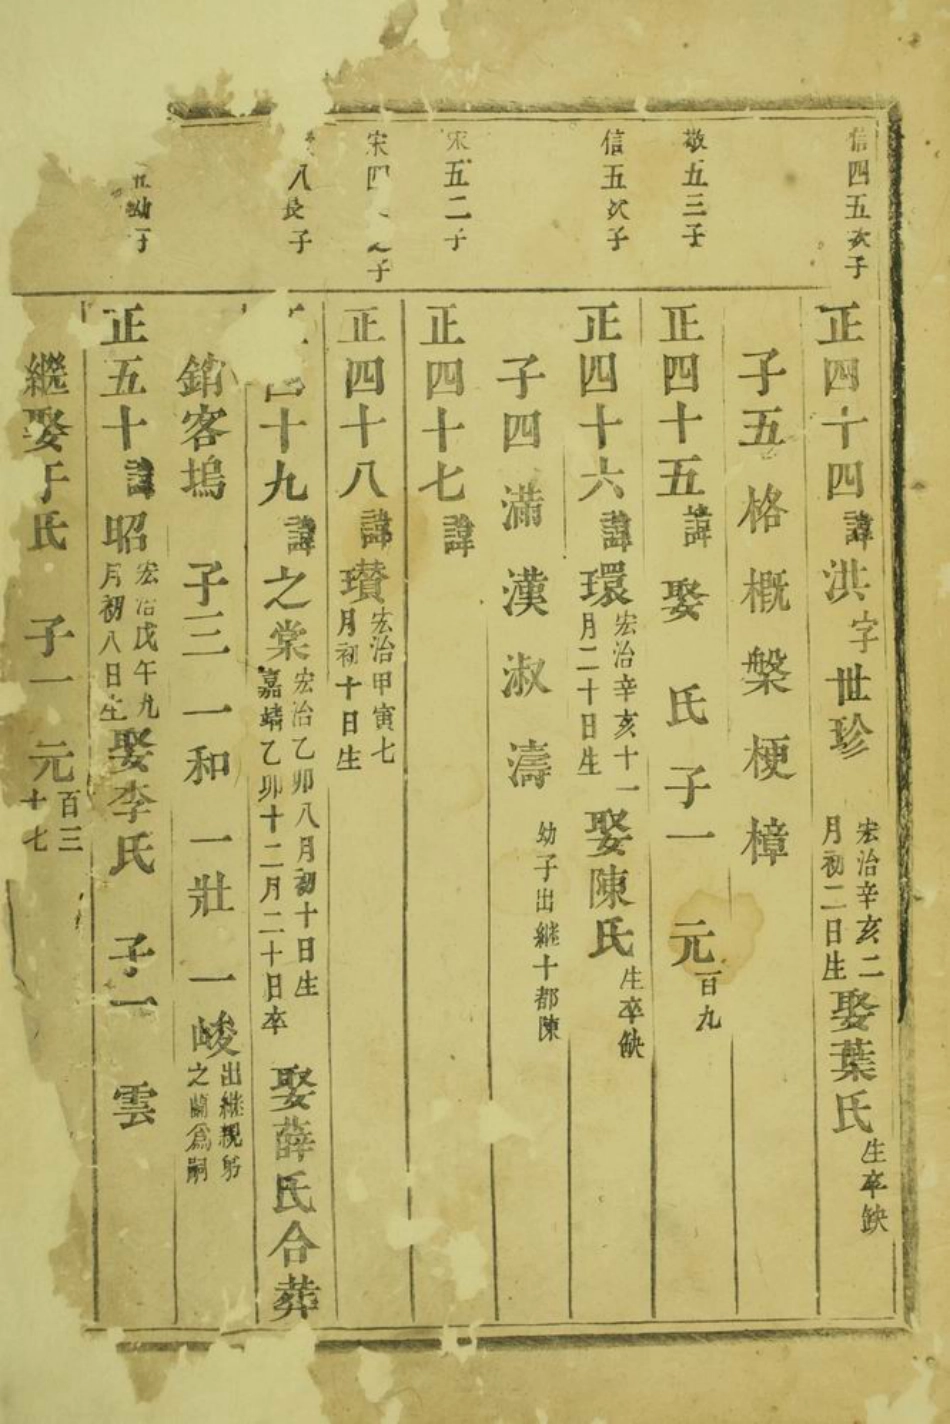 信四五次子
正四十四諱洪字世珍 宏治辛亥二月初二日生 娶葉氏 生卒缺
子五 格 概 槃 梗 樟
敬五三子
正四十五諱 娶 氏 子一 元百九
信五次子
正四十六諱環 宏治辛亥十一月二十日生 娶陳氏 生卒缺
子四 滿 漢 淑 濤 幼子出繼十都陳
宋五二子
正四十七諱
宋四 之子
正四十八諱瓚 宏治甲寅七月初十日生
八長子
四十九諱之棠 宏治乙卯八月初十日生 嘉靖乙卯十二月二十日卒 娶薛氏合葬
客塢 子三 一和 一壯 一峻 出繼親 之 為嗣
五幼子
正五十諱昭 宏治戊午九月初八日生 娶李氏 子一 雲
繼娶于氏 子一 元百三十七